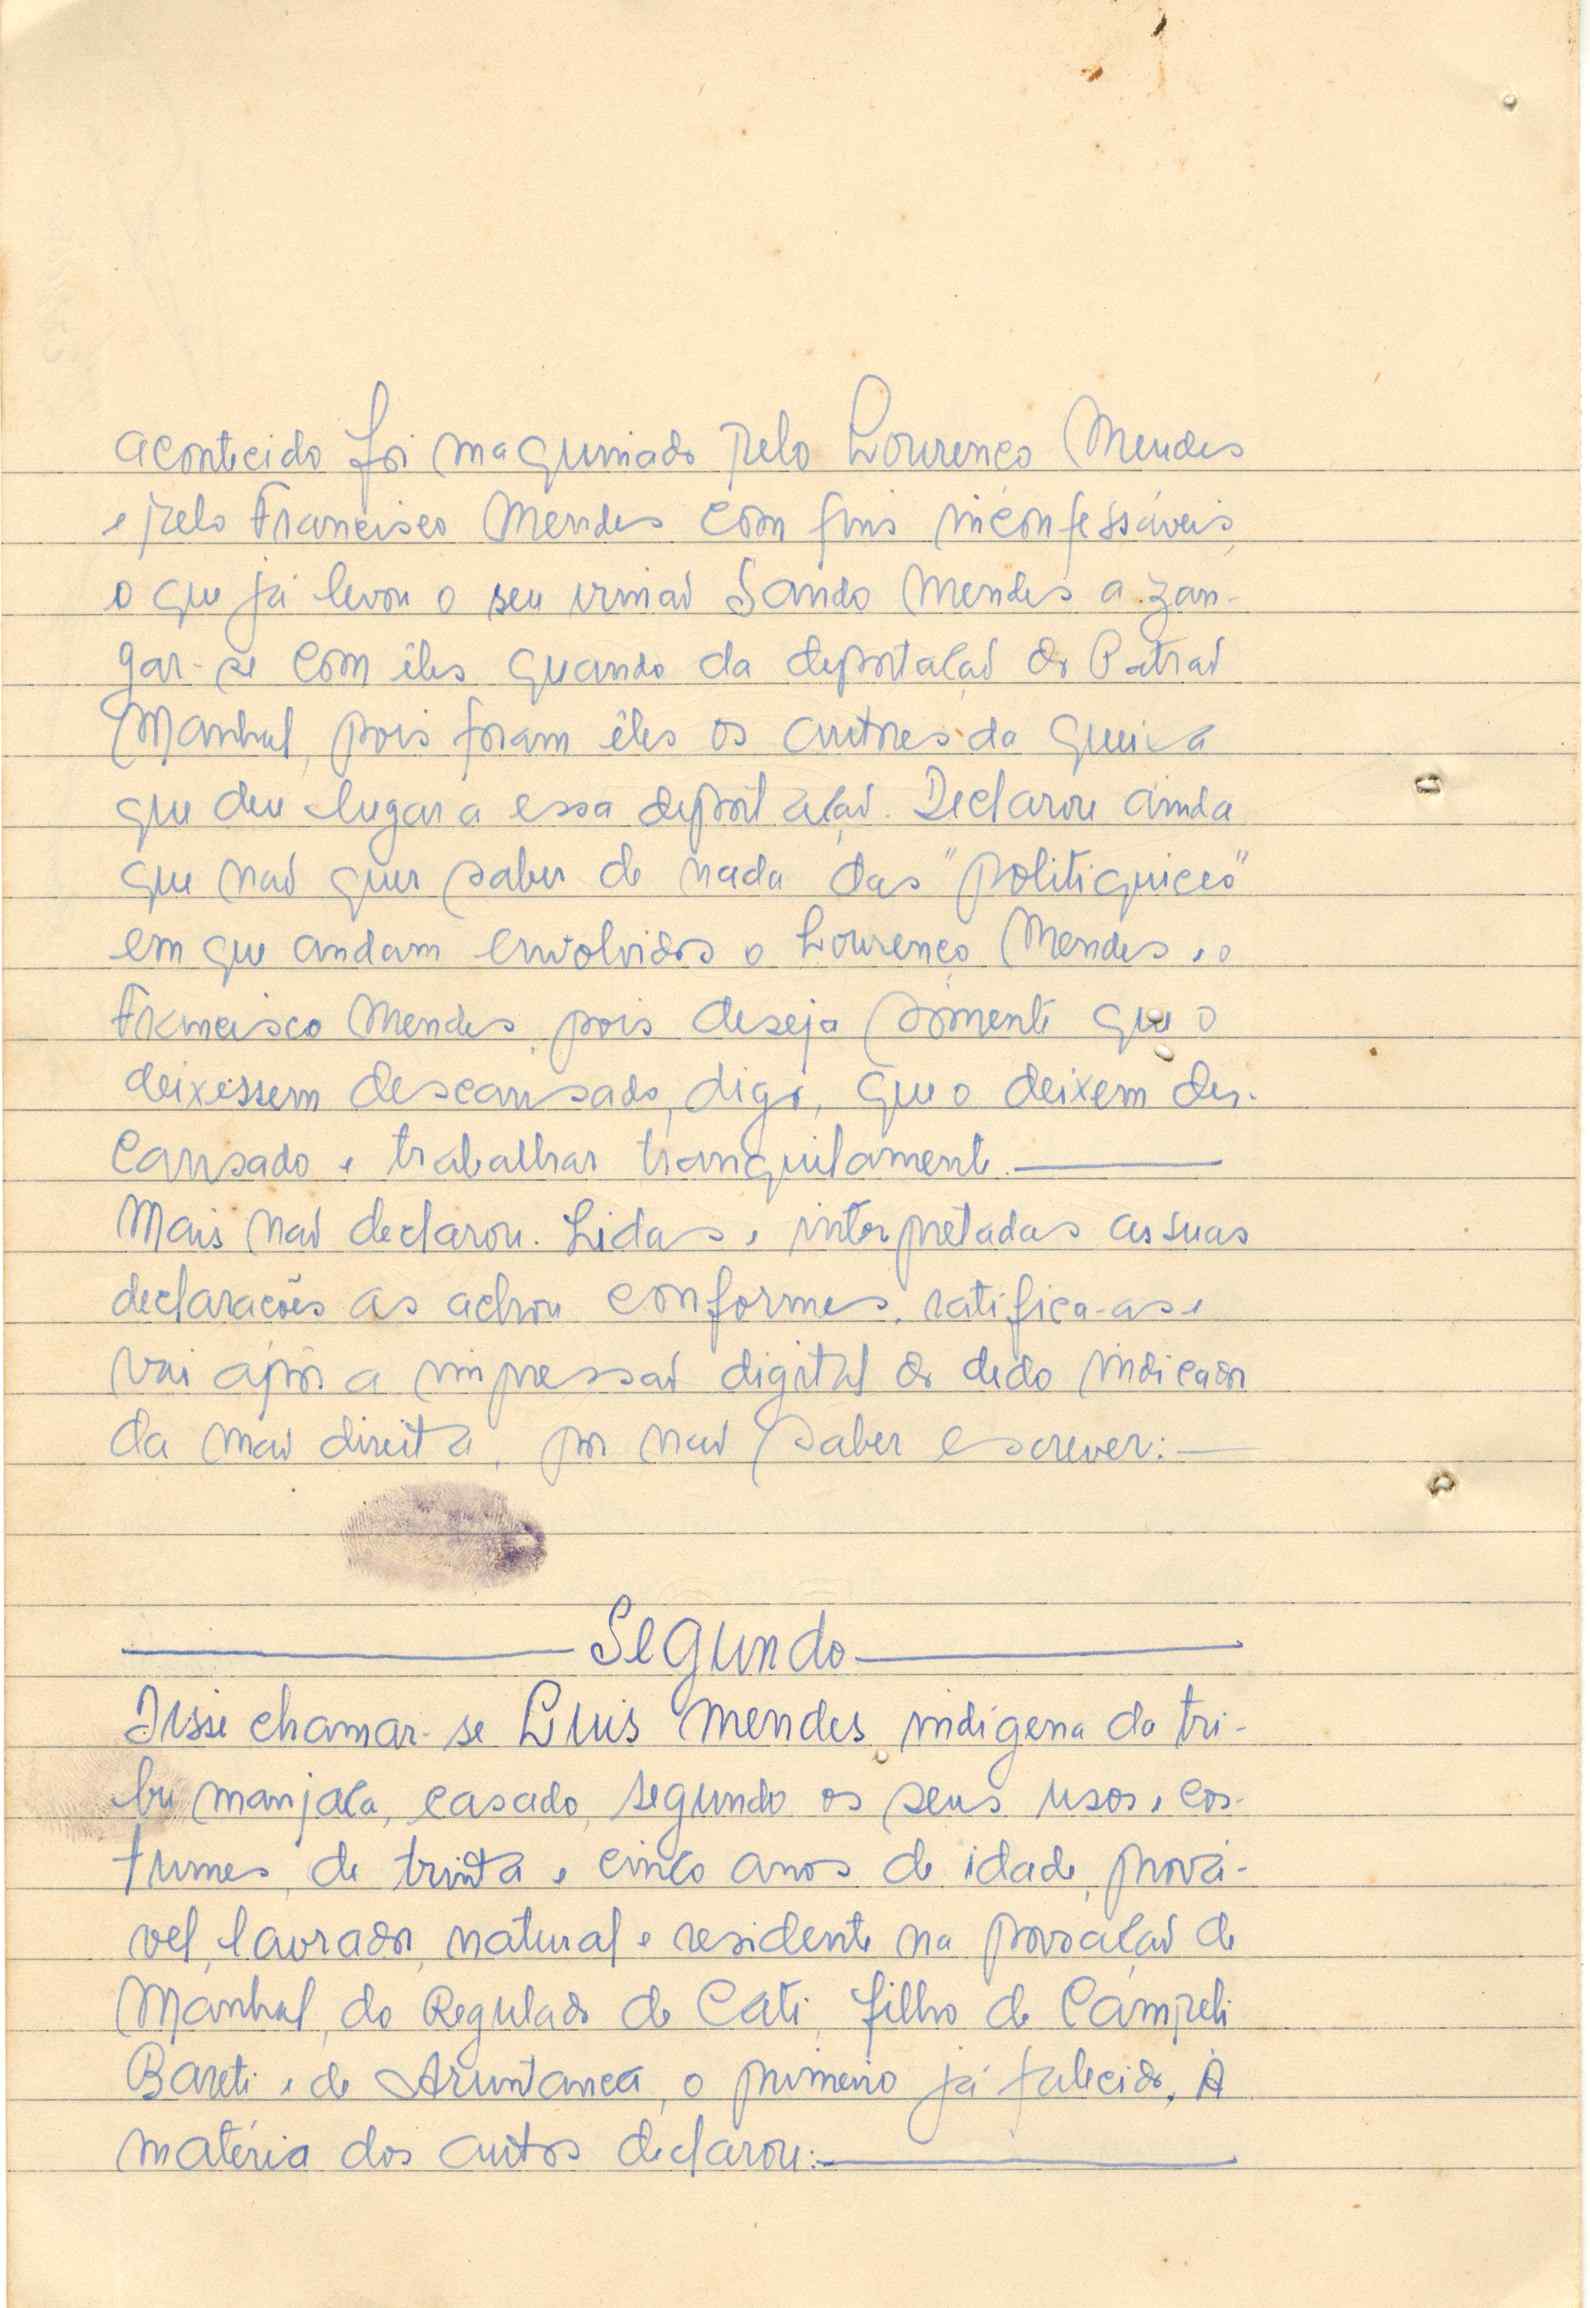 acontecido foi maquinado pelo Lourenço Mendes
e pelo Francisco Mendes com fins inconfessáveis,
o que já levou o seu irmão Sando Mendes a zan-
gar-se com êles quando da deportação do Patrão
Manhal, pois foram êles os autores da queixa
que deu lugar a essa deportação. Declarou ainda
que não quer saber de nada das "politiquices"
em que andam envolvidos o Lourenço Mendes e o
Francisco Mendes, pois deseja sòmente que o
deixessem descansado, digo, que o deixem des-
cansado e trabalhar tranquilamente.
Mais não declarou. Lidas e interpretadas as suas
declarações as achou conformes, ratifica-as e
vai após a impressão digital do dedo indicador
da mão direita, por não saber escrever:
Segundo
Disse chamar-se Luis Mendes, indígena da tri-
bu manjaca, casado, segundo os seus usos e cos-
tumes, de trinta e cinco anos de idade, prová-
vel, lavrador, natural e residente na povoação de
Manhal, do Regulado de Cati, filho de Campeli
Bareti e de Aruntancá, o primeiro já falecido. À
matéria dos autos declarou: